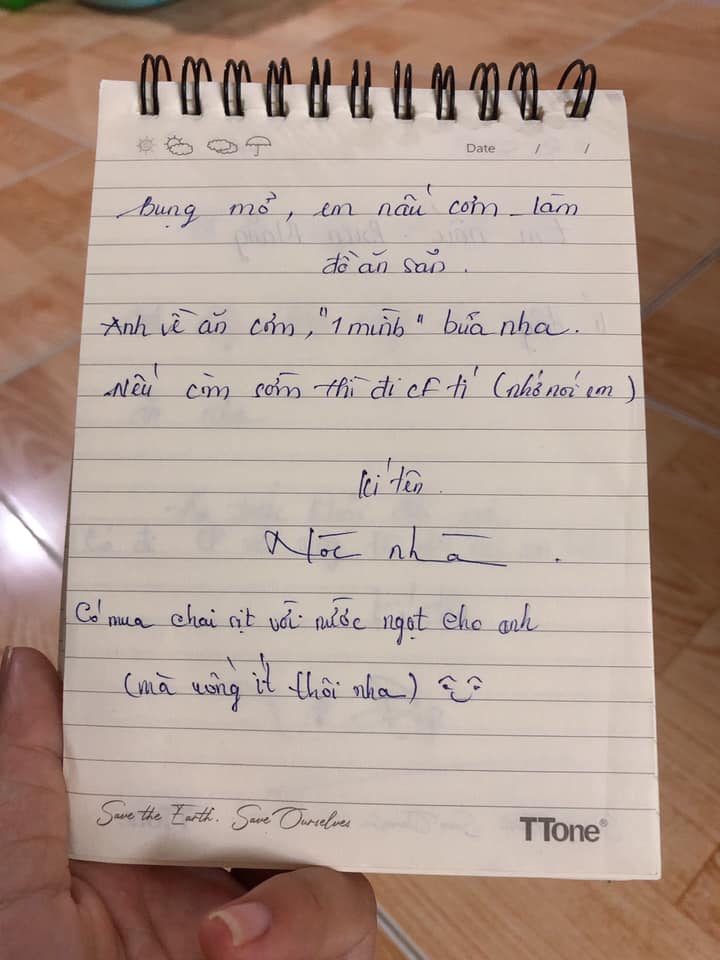 Date / /
Bụng mỡ, em nấu cơm - làm
đồ ăn sẵn.
Anh về ăn cơm, "1 mình" bữa nha.
Nếu còn sớm thì đi cf tí (nhớ nói em)
kí tên.
Nóc nhà.
Có mua chai rịt với nước ngọt cho anh
(mà uống ít thôi nha)
Save the Earth. Save Ourselves
TTone®